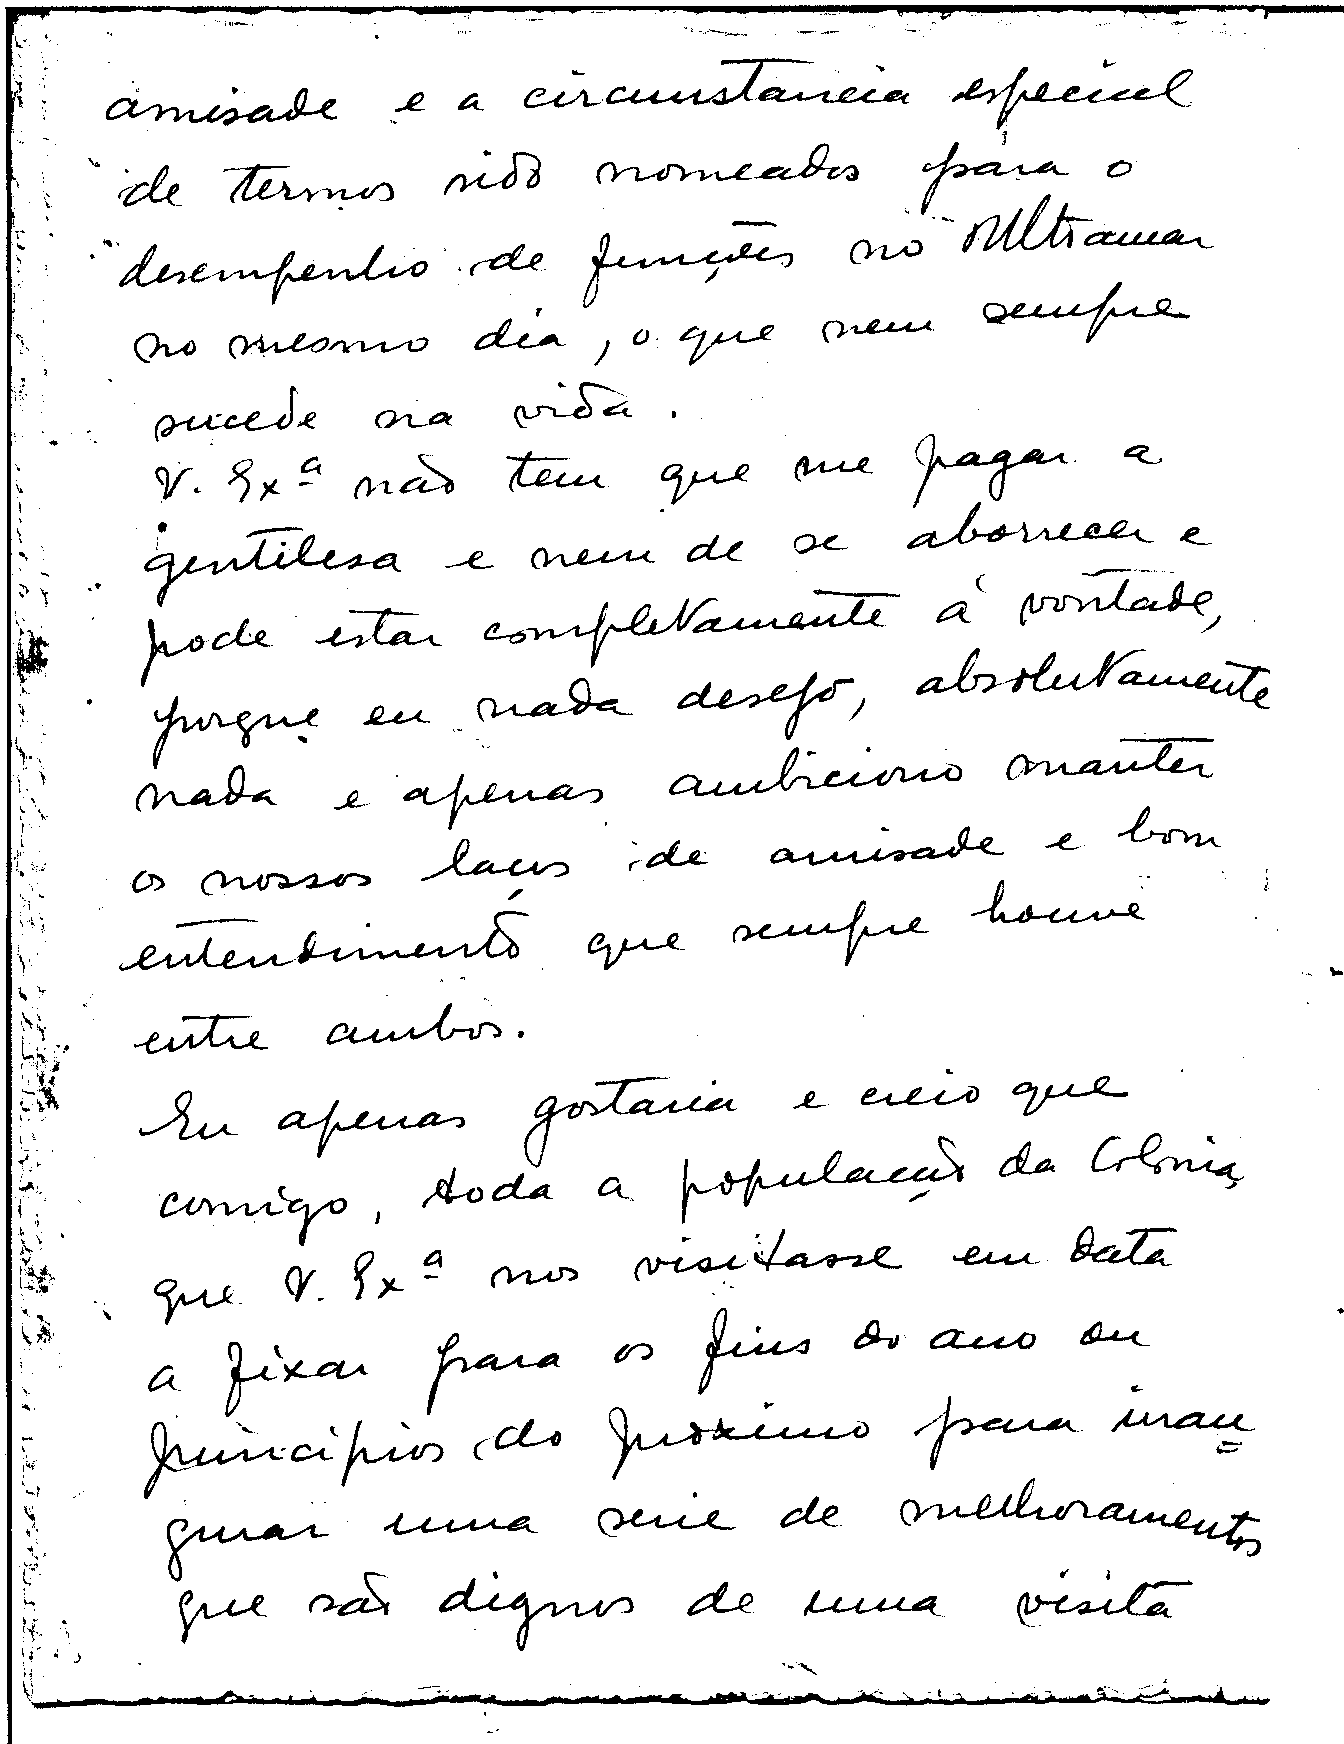 amisade e a circunstancia especial
de termos sido nomeados para o
desempenho de funções no Ultramar
no mesmo dia, o que nem sempre
sucede na vida.
V. Exª não tem que me pagar a
gentilesa e nem de se aborrecer e
pode estar completamente á vontade,
porque eu nada desejo, absolutamente
nada e apenas ambiciono manter
os nossos laços de amisade e bom
entendimento que sempre houve
entre ambos.
Eu apenas gostaria e creio que
comigo, toda a população da Colonia,
que V. Exª nos visitasse em data
a fixar para os fins do ano ou
principios do proximo para inau=
gurar uma serie de melhoramentos
que são dignos de uma visita